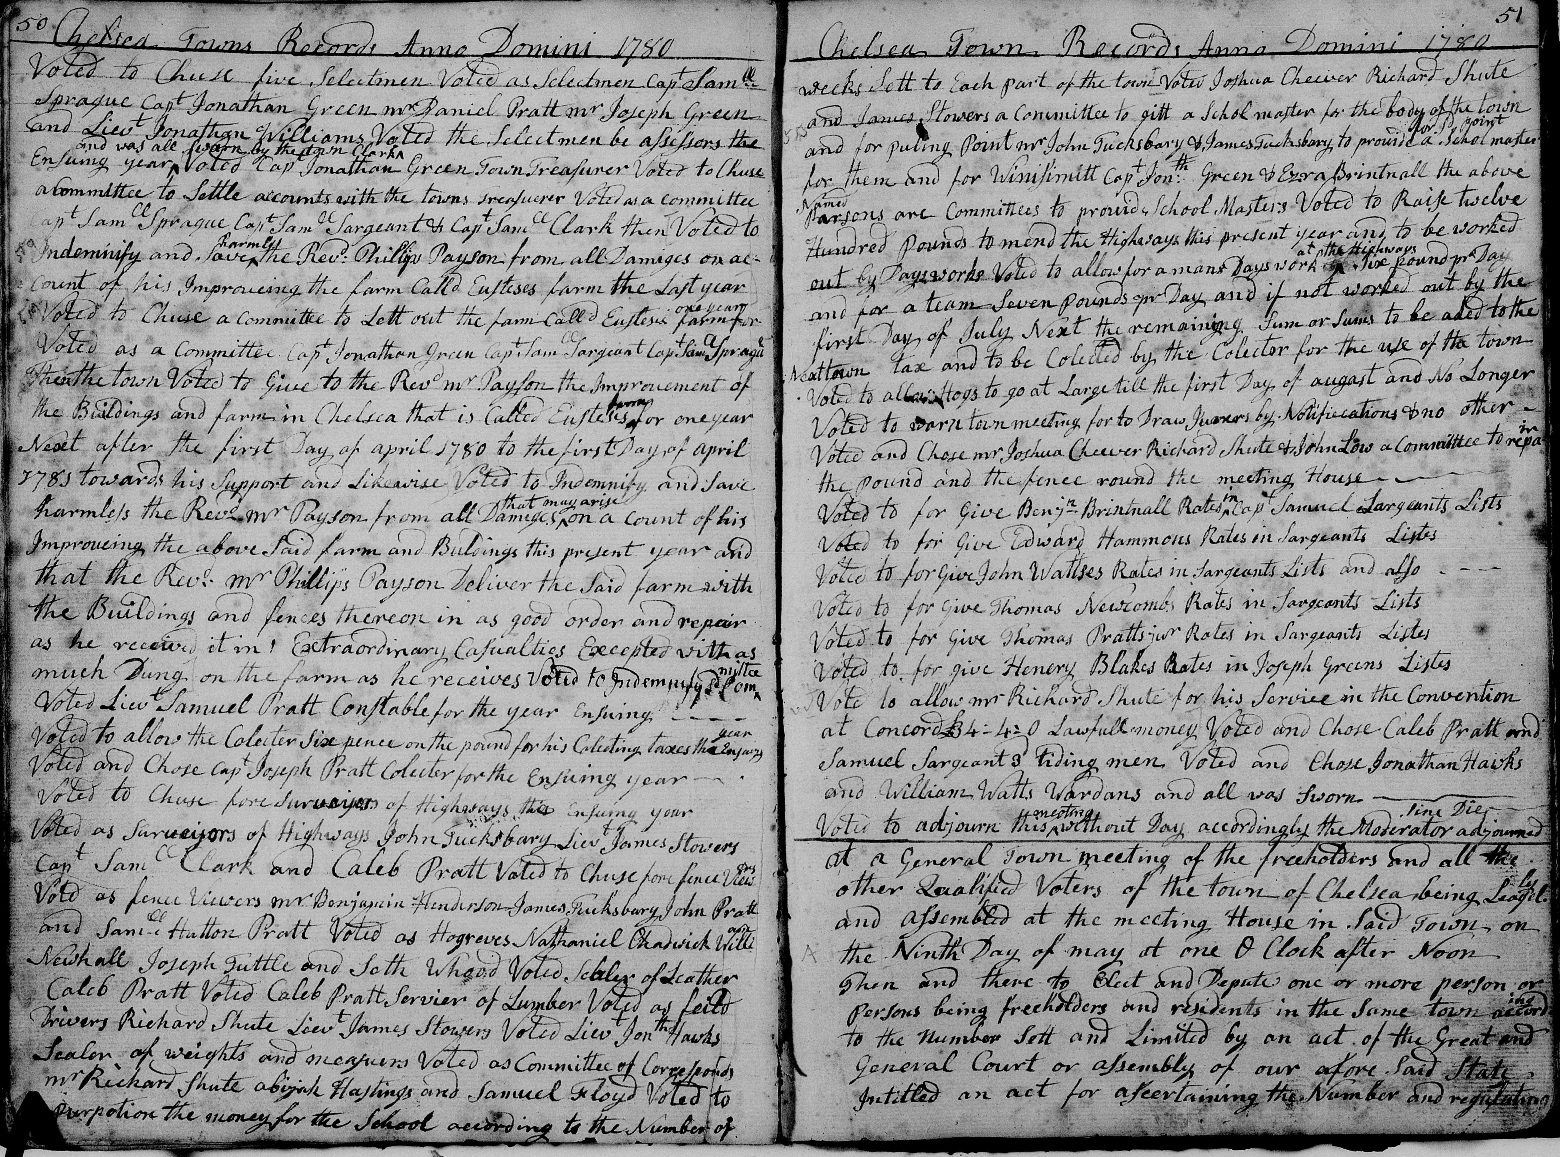 50
Chelsea Towns Records Anno Domini 1780
Voted to Chuse five Selectmen Voted as Selectmen Capt Samll
Sprague Capt Jonathan Green mr Daniel Pratt mr Joseph Green
and Lievt Jonathan Williams Voted the Selectmen be assessors the
and was all sworn by the town Clark
Ensuing year Voted Capt Jonathan Green Town Treasurer Voted to Chuse
a Committee to Settle accounts with the towns treasurer Voted as a committee
Capt Samll Sprague Capt Samll Sargeant & Capt Samll Clark then Voted to
harmless
Indemnify and Save the Revd Phillips Payson from all Damiges on ac-
count of his Improveing the farm Calld Eusteses farm the Last year
one year
Voted to Chuse a Committee to Lett out the farm Called Eusteses farm for
Voted as a Committee Capt Jonathan Green Capt Samll Sargeant Capt Samll Sprague
then the town Voted to Give to the Revd mr Payson the Improvement of
farm
the Buildings and farm in Chelsea that is Called Eusteses for one year
Next after the first Day of april 1780 to the first Day of april
1781 towards his Support and Likewise Voted to Indemnify and Save
that may arise
harmless the Revd mr Payson from all Damiges on a count of his
Improveing the above Said farm and Buldings this present year and
that the Revd mr Phillips Payson Deliver the Said farm with
the Buildings and fences thereon in as good order and repair
as he received it in Extraordinary Casualties Excepted with as
much Dung on the farm as he receives Voted to Indemnify sd Com
mittee
Voted Lievt Samuel Pratt Constable for the year Ensuing
year
Voted to allow the Colecter Six pence on the pound for his Colecting taxes the Ensuing
Voted and Chose Capt Joseph Pratt Colecter for the Ensuing year
Voted to Chuse fore Surveiyors of Highways the Ensuing year
Voted as Surveiyors of Highways John Tucksbary Lievt James Stowers
Capt Samll Clark and Caleb Pratt Voted to Chuse fore fence View
ors
Voted as fence Viewers mr Benjamin Henderson James Tucksbary John Pratt
and Samll Hatton Pratt Voted as Hogreves Nathaniel Chadwick Willi
am
Newhall Joseph Tuttle and Seth Whood Voted Sealer of Leather
Caleb Pratt Voted Caleb Pratt Servier of Lumber Voted as feild
Drivers Richard Shute Lievt James Stowers Voted Lievt Jonth Hawks
Sealer of weights and measures Voted as Committee of Corresponds
mr Richard Shute abijah Hastings and Samuel Floyd Voted to
purpotion the money for the School according to the Number of
51
Chelsea Town Records Anno Domini 1780
weeks Sett to Each part of the town Voted Joshua Cheever Richard Shute
and James Stowers a Committee to gitt a Schol master for the body of the town
for sd point
and for puling Point mr John Tucksbary & James Tucksbary to provide a Schol master
for them and for Winisimitt Capt Jonth Green & Ezra Brintnall the above
Named
Parsons are Committees to provide School Masters Voted to Raise twelve
Hundred pounds to mend the Highways this present year and to be worked
at the Highways
out by Days works Voted to allow for a mans Days work Six pound pr Day
and for a team Seven pounds pr Day and if not worked out by the
first Day of July Next the remaining Sum or Sums to be aded to the
Next town tax and to be Colected by the Colector for the use of the town
Voted to allow Hogs to go at Large till the first Day of august and No Longer
Voted to warn town meeting for to Draw Jurers by Notifications & no other
Voted and Chose mr Joshua Cheever Richard Shute & John Low a Committee to repa
ir
the pound and the fence round the meeting House
in
Voted to for Give Benjn Brintnall Rates Capt Samuel Sargeants Lists
Voted to for Give Edward Hammons Rates in Sargeants Listes
Voted to for Give John Wattses Rates in Sargeants Lists and also
Voted to for Give Thomas Newcombs Rates in Sargeants Lists
Voted to for Give Thomas Pratts jur Rates in Sargeants Listes
Voted to for give Henery Blakes Rates in Joseph Greens Listes
Vote to allow mr Richard Shute for his Service in the Convention
at Concord £34-4-0 Lawfull money Voted and Chose Caleb Pratt and
Samuel Sargeant 3d Tiding men Voted and Chose Jonathan Hawks
and William Watts Wardans and all was Sworn
meeting
Sine Die
Voted to adjourn this without Day accordingly the Moderator adjourned
at a General Town meeting of the freeholders and all the
other Qualified Voters of the town of Chelsea being Leagel
ly
and assembled at the meeting House in Said Town on
the Ninth Day of may at one O Clock after Noon
Then and there to Elect and Depute one or more person or
Persons being freeholders and residents in the Same town accord
ing
to the Number Sett and Limited by an act of the Great and
General Court or assembly of our afore Said State
Intitled an act for ascertaining the Number and regulating